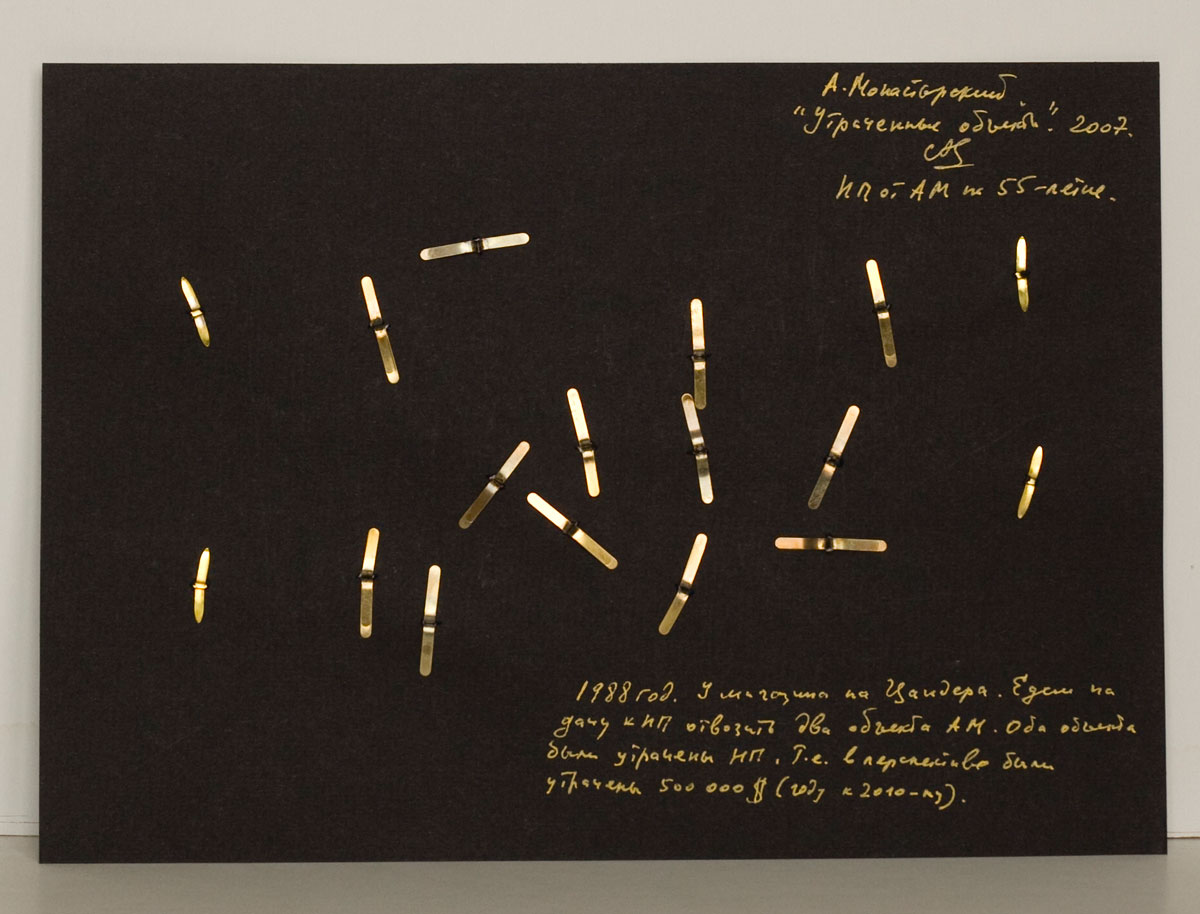 А. Монастырский
"Утраченные объекты". 2007.
ИП от АМ на 55-летие.
1988 год. У магазина на Цандера. Едем на
дачу к ИП отвозить два объекта АМ. Оба объекта
были утрачены ИП. Т.е. в перспективе были
утрачены 500 000 $ (году к 2010-му).